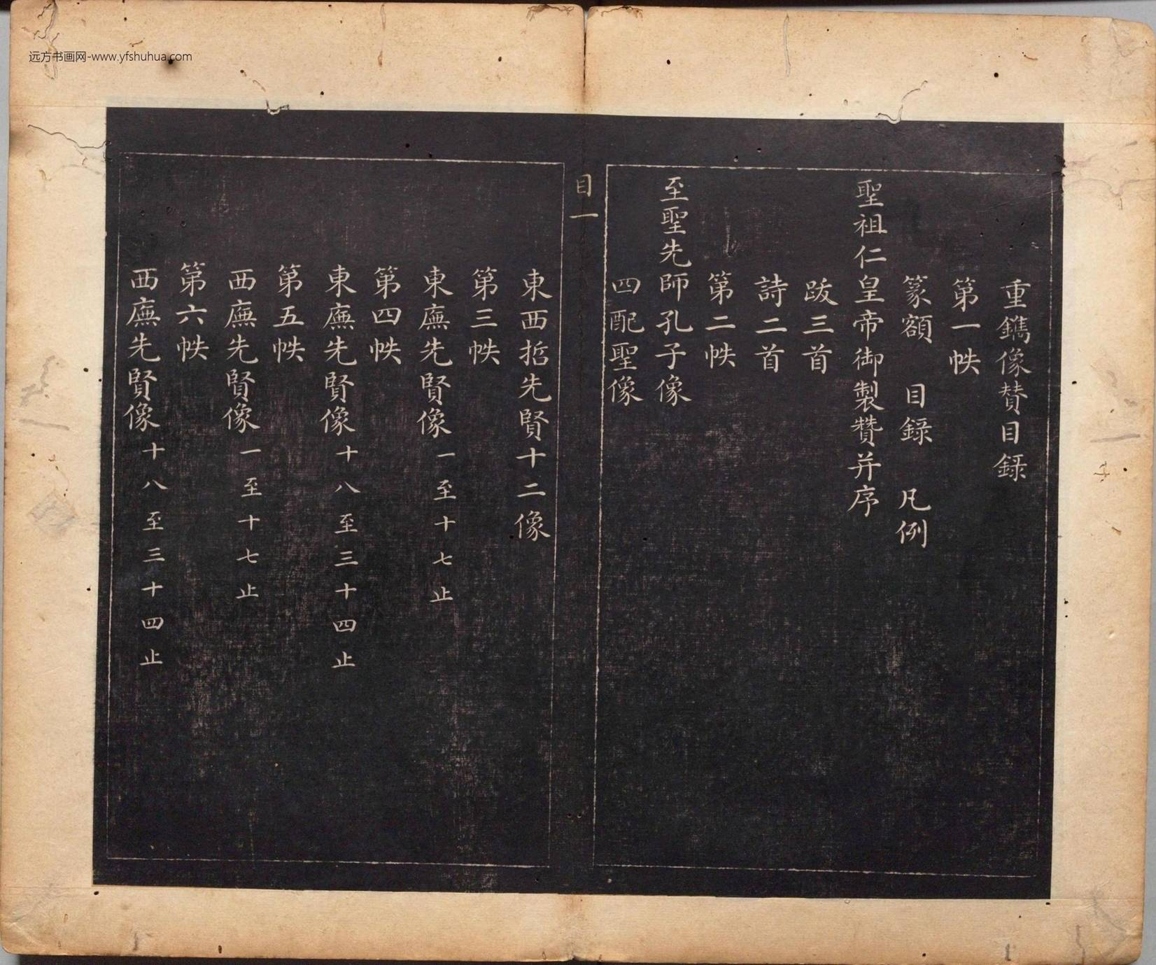 远方书画网-www.yfshuhua.com
重鐫像賛目録
第一帙
篆額 目錄 凡例
聖祖仁皇帝御製贊并序
跋三首
詩二首
第二帙
至聖先師孔子像
四配聖像
目一
東西哲先賢十二像
第三帙
東廡先賢像一至十七止
第四帙
東廡先賢像十八至三十四止
第五帙
西廡先賢像一至十七止
第六帙
西廡先賢像十八至三十四止